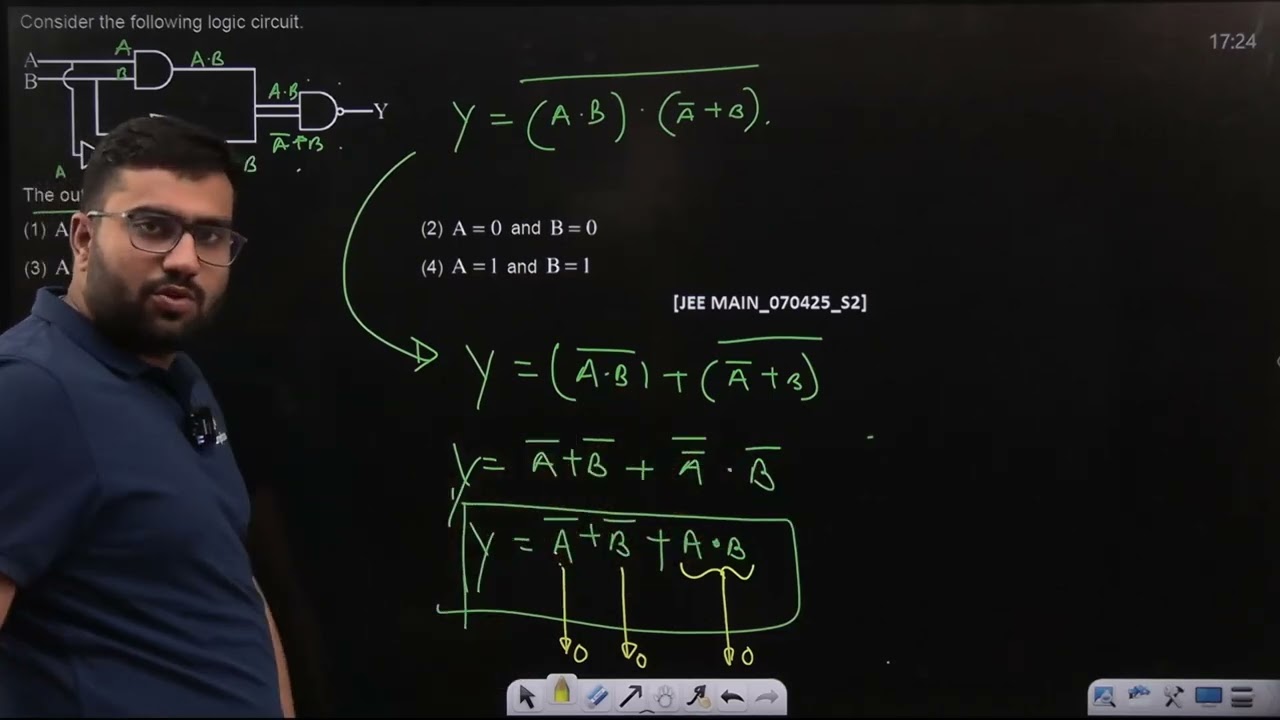 Consider the following logic circuit.
17:24
A A A·B
B B
A·B
Y
A̅+B
A B
Y = \overline{(A·B)·(A̅+B)}.
The ou
(1) A
(2) A = 0 and B = 0
(3) A
(4) A = 1 and B = 1
[JEE MAIN_070425_S2]
Y = (\overline{A·B}) + (\overline{A̅+B})
Y = A̅+B̅ + \overline{A̅} · B̅
Y = A̅ + B̅ + A·B
0 0 0